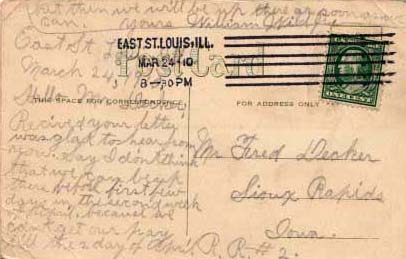 that then we will be up there as soon as we
can. Yours William
East St. L
EAST ST. LOUIS, ILL.
MAR 24 -10
8-30 PM
Post Card
March 24, 19
THIS SPACE FOR CORRESPONDENCE
FOR ADDRESS ONLY
Hello Mr.
Recived your letter
was glad to hear from
you. Say I don't think
that we can be up
there before first few
days in the second week
of April, because we
can't get our pay
till the 2 day of Apri.
Mr Fred Decker
Sioux Rapids
Iowa.
R. R. # 2.